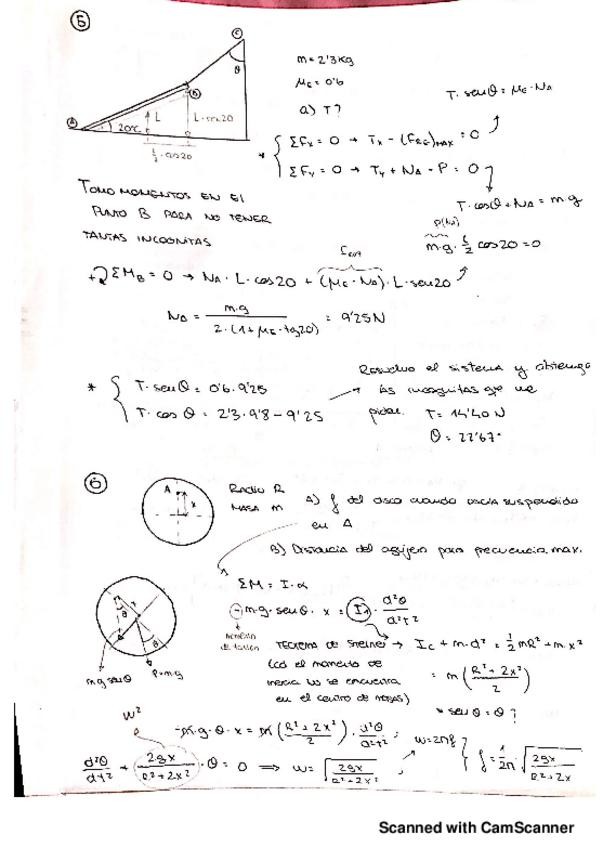 5
C
θ
B
A
20º
L
L·sen20
L/2·cos20
m = 2'3 kg
μE = 0'6
a) T?
T·senθ = μE·NA
* { ΣFx = 0 → Tx - (FRE)MAX = 0
ΣFy = 0 → Ty + NA - P = 0
T·cosθ + NA = m·g
TOMO MOMENTOS EN EL
PUNTO B PARA NO TENER
TANTAS INCOGNITAS
m·g·L/2 cos20 = 0
+ ΣMB = 0 → NA·L·cos20 + (μE·NA)·L·sen20
NA = m·g / 2·(1+μE·tg20) = 9'25N
* { T·senθ = 0'6·9'25
T·cosθ = 2'3·9'8 - 9'25
Resuelvo el sistema y obtengo
las incognitas que me
piden. T = 14'40 N
θ = 22'67º
6
A
x
RADIO R
MASA m
A) f del disco cuando oscila suspendido
en A
B) Distancia del agujero para frecuencia max.
ΣM = I·α
-m·g·senθ·x = I1·d²θ/dt²
θ
mg senθ
P=m·g
TEOREMA DE STEINER → Ic + m·d² = 1/2 mR² + m·x²
(cd el momento de
inercia no se encuentra
en el centro de masas)
= m(R² + 2x² / 2)
* senθ = θ ?
w²
-m·g·θ·x = m(R² + 2x² / 2)·d²θ/dt² ; w = 2πf
d²θ/dt² + 2gx/R²+2x²·θ = 0 ⟹ w = √2gx/R²+2x²
f = 1/2π·√2gx/R²+2x
Scanned with CamScanner